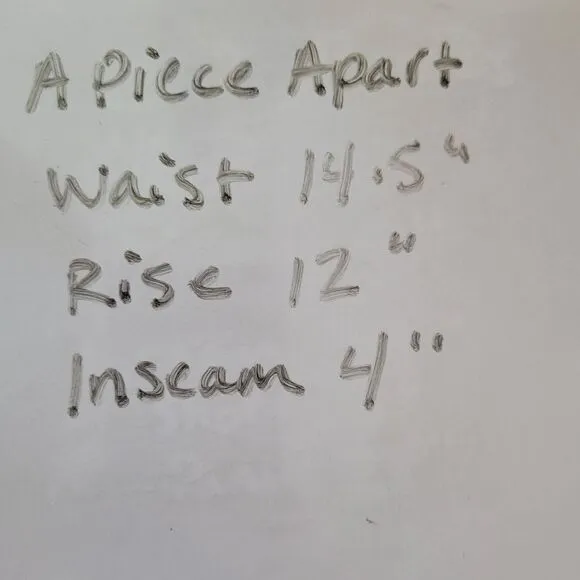 A Piece Apart
Waist 14.5"
Rise 12"
Inseam 4"